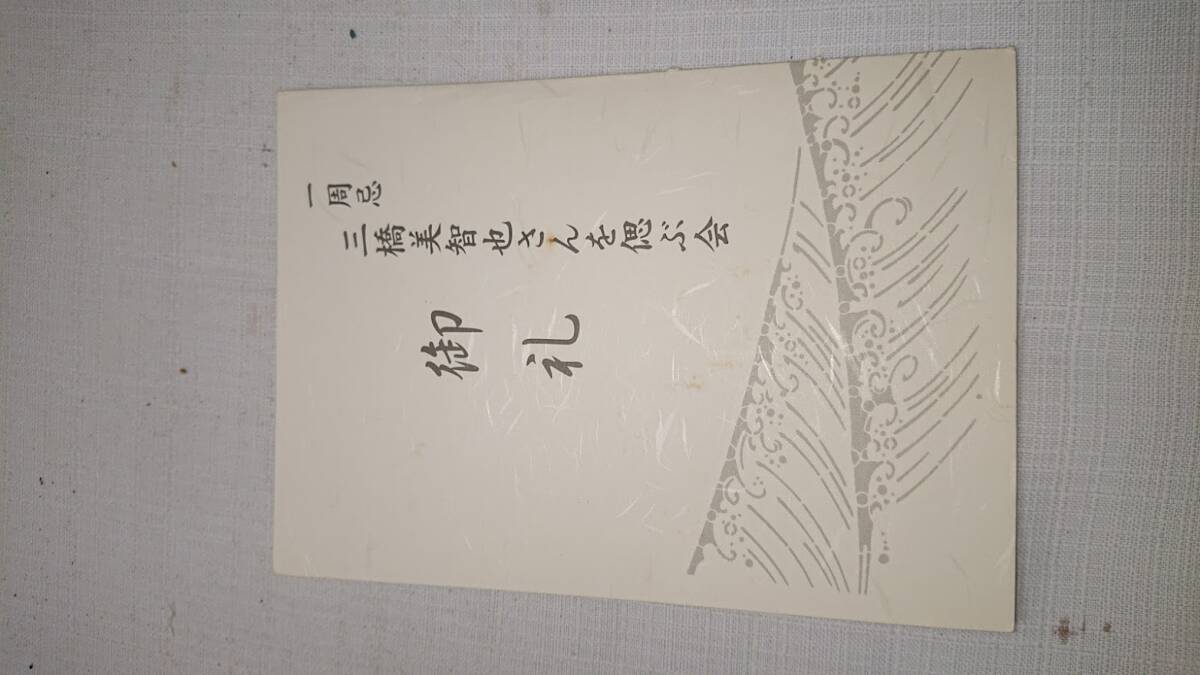 一周忌
三橋美智也さんを偲ぶ会
御礼